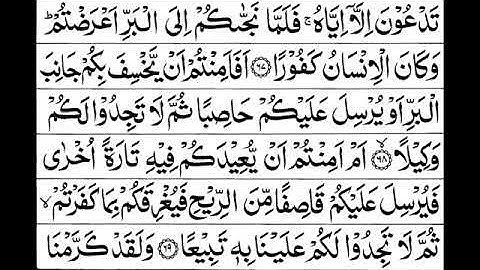 تَدۡعُوۡنَ اِلَّاۤ اِيَّاهُ‌ ۚ فَلَمَّا نَجّٰٮكُمۡ اِلَى الۡبَرِّ اَعۡرَضۡتُمۡ‌ ؕ
وَكَانَ الۡاِنۡسَانُ كَفُوۡرًا‏ ﴿۶۷﴾ اَفَاَمِنۡتُمۡ اَنۡ يَّخۡسِفَ بِكُمۡ جَانِبَ
الۡبَرِّ اَوۡ يُرۡسِلَ عَلَيۡكُمۡ حَاصِبًا ثُمَّ لَا تَجِدُوۡا لَـكُمۡ
وَكِيۡلًا ۙ‏ ﴿۶۸﴾ اَمۡ اَمِنۡتُمۡ اَنۡ يُّعِيۡدَكُمۡ فِيۡهِ تَارَةً اُخۡرٰى
فَيُرۡسِلَ عَلَيۡكُمۡ قَاصِفًا مِّنَ الرِّيۡحِ فَيُغۡرِقَكُمۡ بِمَا كَفَرۡتُمۡ‌ ۙ
ثُمَّ لَا تَجِدُوۡا لَـكُمۡ عَلَيۡنَا بِهٖ تَبِيۡعًا‏ ﴿۶۹﴾ وَلَـقَدۡ كَرَّمۡنَا